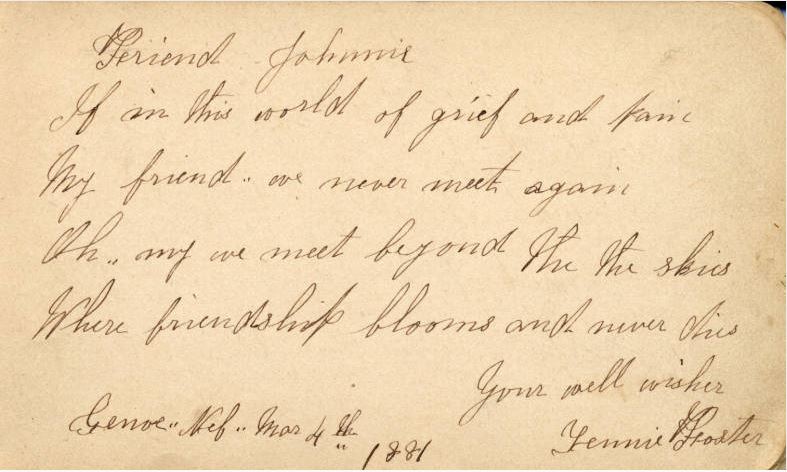 Friend Johnnie
If in this world of grief and pain
My friend.. we never meet again
Oh,, my we meet beyond the the skies
Where friendship blooms and never dies
Your well wisher
Genoe,, Neb,, Mar 4th 1881
Jennie Froster